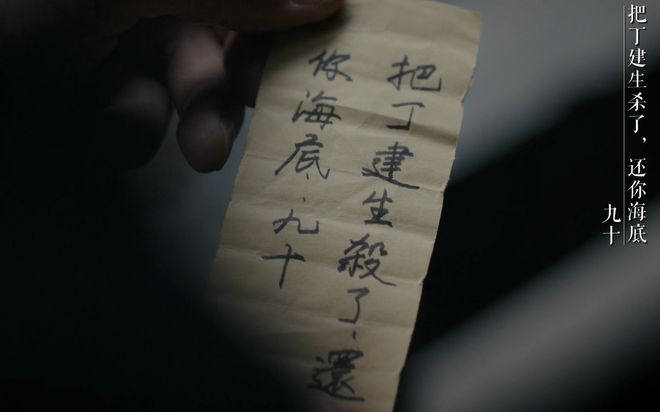 把丁建生殺了、還
你海底、九十
把丁建生杀了，还你海底
九十